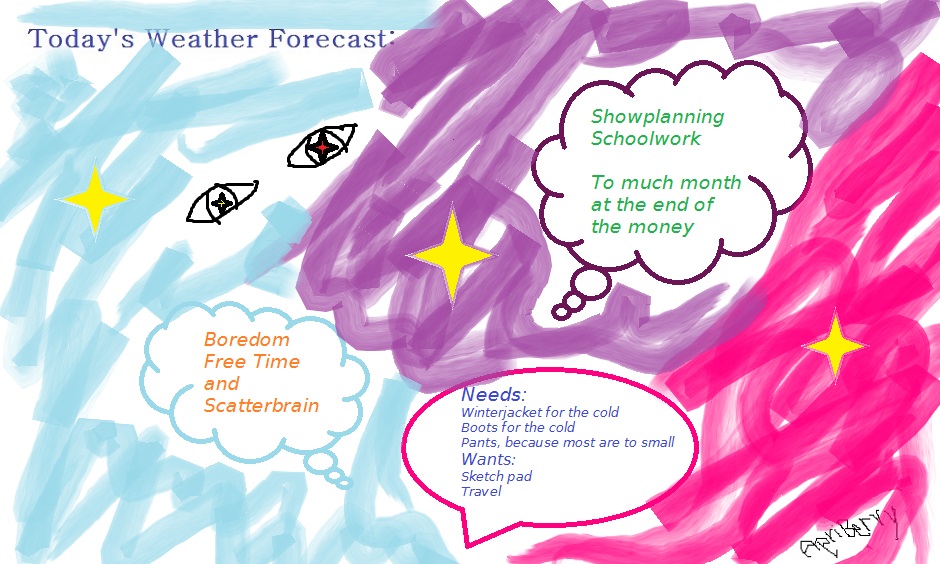 Today's Weather Forecast:
Showplanning
Schoolwork
To much month
at the end of
the money
Boredom
Free Time
and
Scatterbrain
Needs:
Winterjacket for the cold
Boots for the cold
Pants, because most are to small
Wants:
Sketch pad
Travel